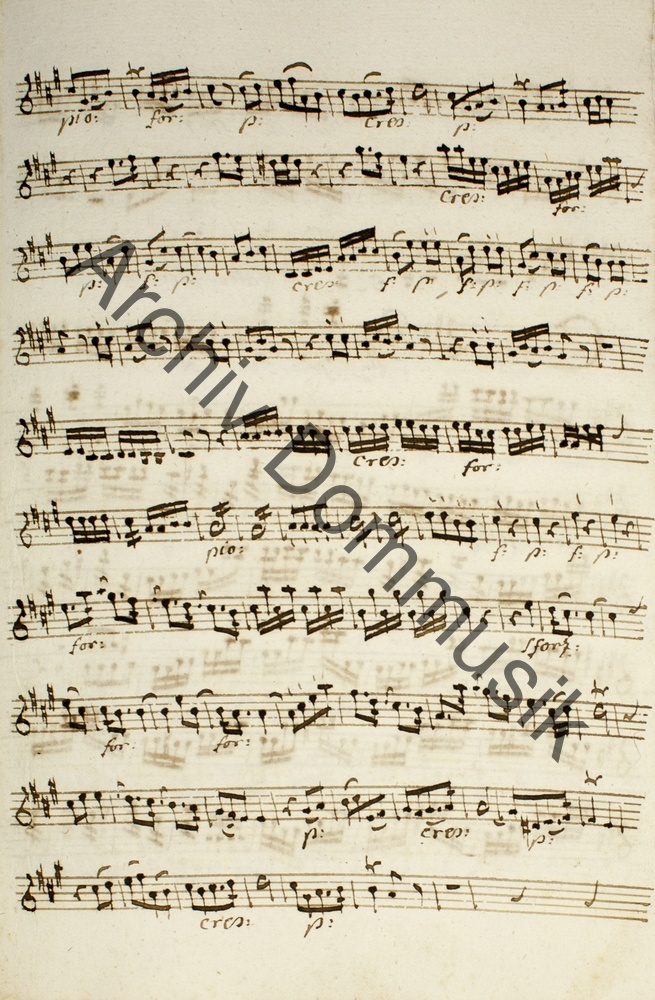 pio: for: p: cres: p:
cres: for:
p: f: p: cres f: p: f: p: f: p: f: p:
cres: for:
pio: f: p: f: p:
for: sforz:
for: for:
p: cres: p:
cres: p:
Archiv Dommusik